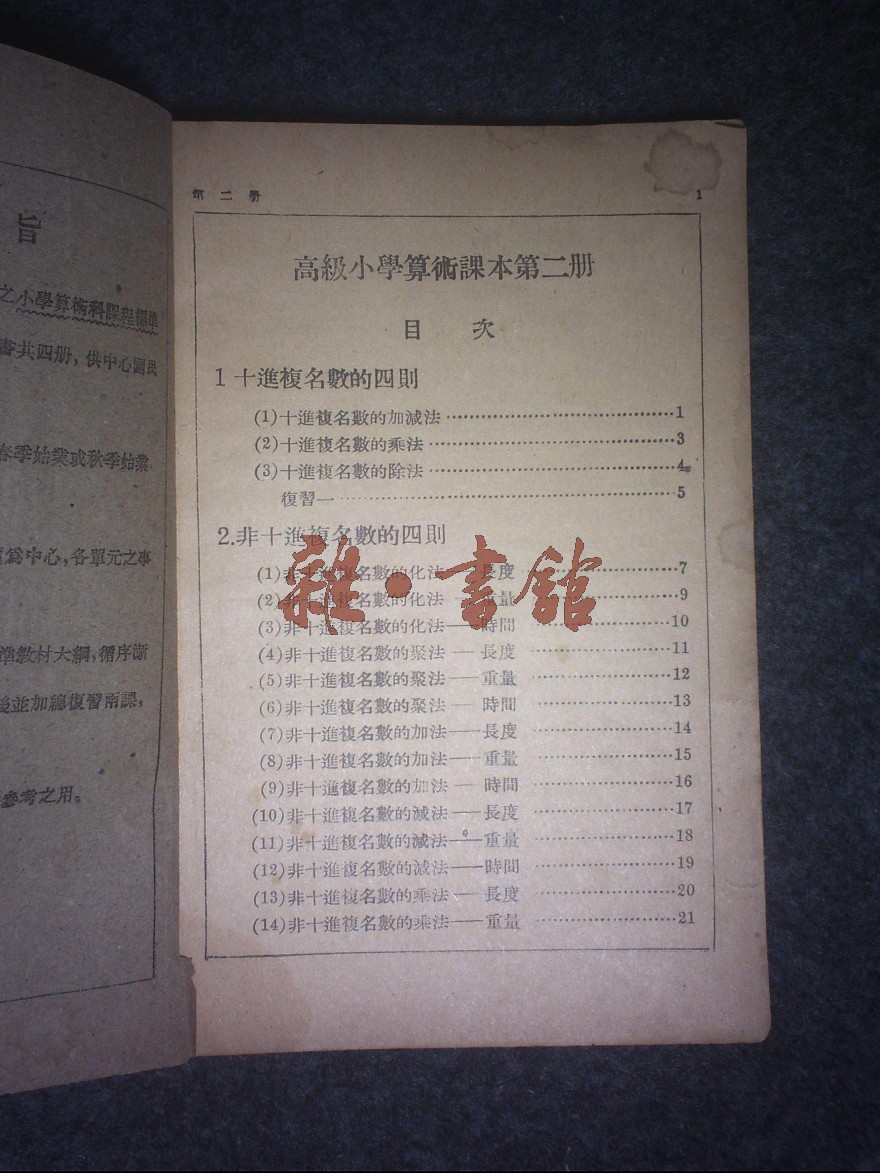 旨
之小學算術科課程標準
書共四册，供中心國民
春季始業或秋季始業
爲中心，各單元之事
準教材大綱，循序漸
後並加總復習兩課，
參考之用。
第二册 1
高級小學算術課本第二册
目 次
1 十進複名數的四則
(1)十進複名數的加減法…………1
(2)十進複名數的乘法…………3
(3)十進複名數的除法…………4
復習一…………5
2.非十進複名數的四則
(1)非十進複名數的化法——長度…………7
(2)非十進複名數的化法——重量…………9
(3)非十進複名數的化法——時間…………10
(4)非十進複名數的聚法——長度…………11
(5)非十進複名數的聚法——重量…………12
(6)非十進複名數的聚法——時間…………13
(7)非十進複名數的加法——長度…………14
(8)非十進複名數的加法——重量…………15
(9)非十進複名數的加法——時間…………16
(10)非十進複名數的減法——長度…………17
(11)非十進複名數的減法——重量…………18
(12)非十進複名數的減法——時間…………19
(13)非十進複名數的乘法——長度…………20
(14)非十進複名數的乘法——重量…………21
雜·書館